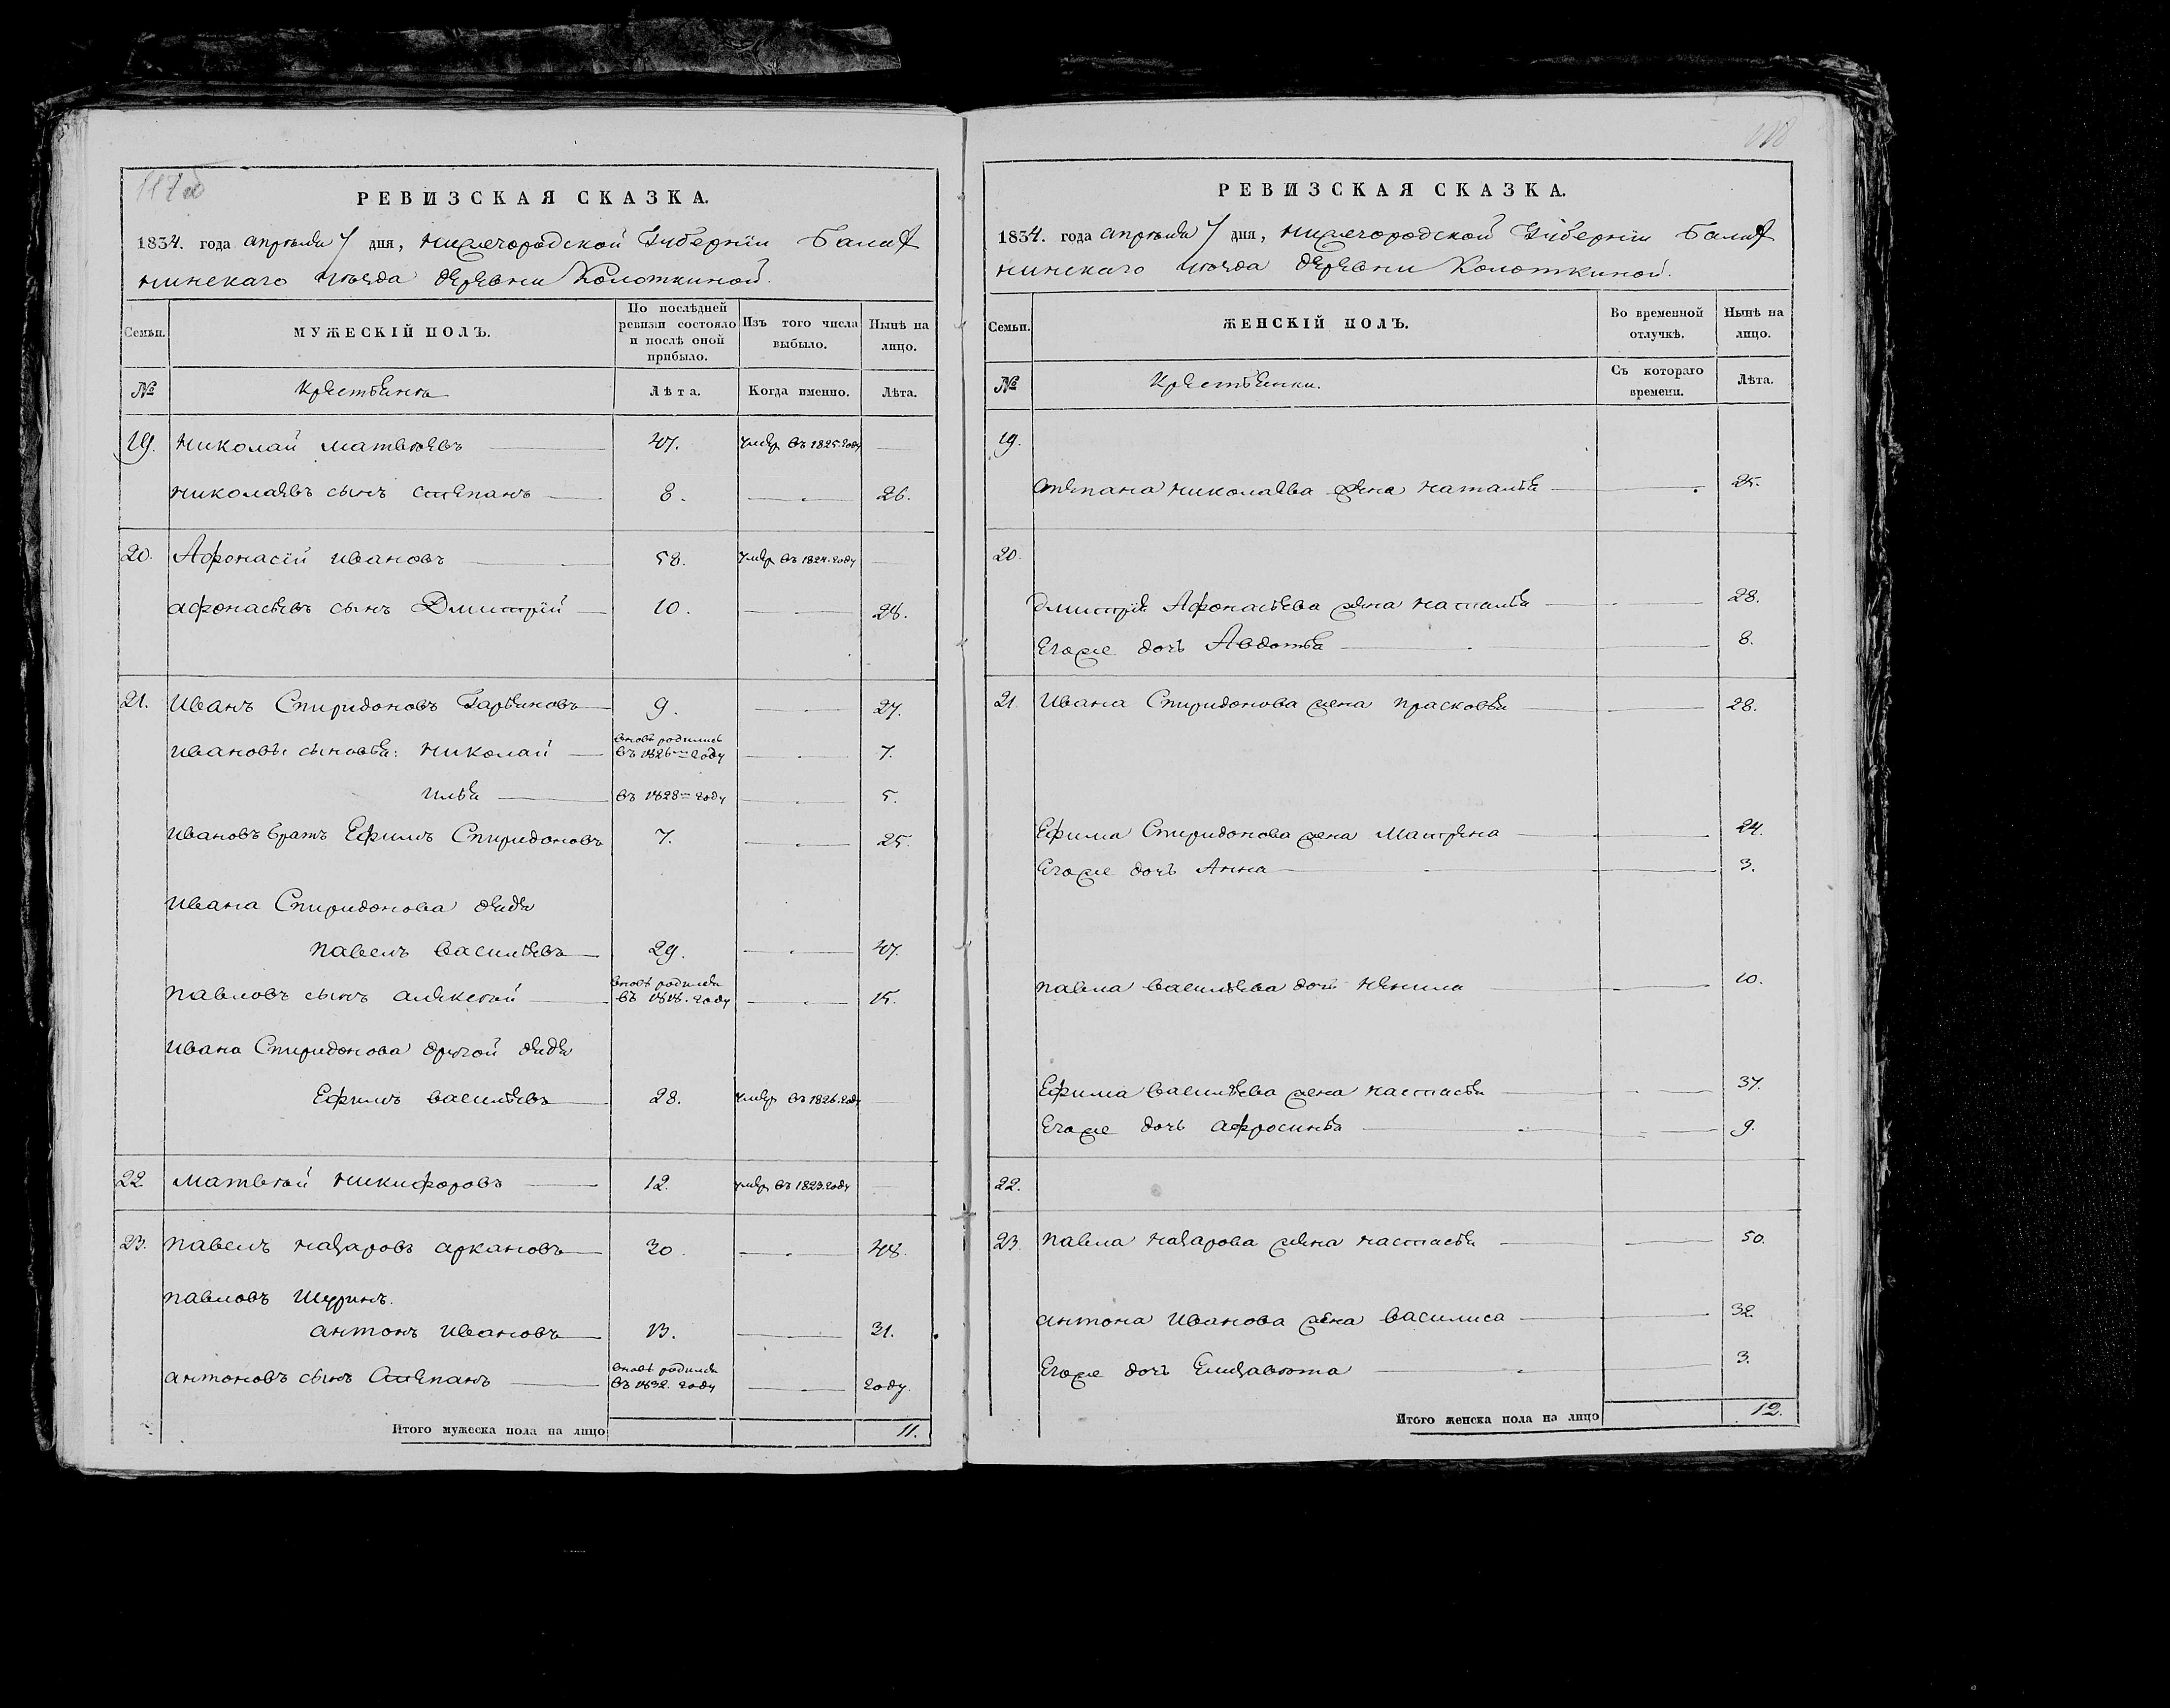 117об
РЕВИЗСКАЯ СКАЗКА.
1834. года апрѣля 7 дня, Нижегородской Губернїи Балах
нинскаго уѣзда деревни Колоткиной.
Семьи. МУЖЕСКІЙ ПОЛЪ. По послѣдней ревизіи состояло и послѣ оной прибыло. Изъ того числа выбыло. Нынѣ на лицо.
№ Крестьяня Лѣта. Когда именно. Лѣта.
19. Николай Матвѣевъ 47. умер въ 1825 году
Николаевъ сынъ Степанъ 8. 26.
20. Афонасїй Ивановъ 58. умер въ 1824. году
Афонасьевъ сынъ Дмитрїй 10. 28.
21. Иванъ Спиридоновъ 9. 27.
Ивановы сыновья: Николай вновь родились въ 1826м году 7.
Илья въ 1828м году 5.
Ивановъ братъ Ефимъ Спиридоновъ 7. 25.
Ивана Спиридонова дядя
Павелъ Васильевъ 29. 47.
Павловъ сынъ Алексѣй вновь родился въ 1818. году 15.
Ивана Спиридонова другой дядя
Ефимъ Васильевъ 28. умер въ 1826. году
22 Матвѣй Никифоровъ 12. умер въ 1823. году
23. Павелъ Назаровъ Аркановъ 30. 48.
Павловъ Шуринъ.
Антонъ Ивановъ 13. 31.
Антоновъ сынъ Степанъ вновь родился въ 1832. году году.
Итого мужеска пола на лицо 11.
118
РЕВИЗСКАЯ СКАЗКА.
1834. года апрѣля 7 дня, Нижегородской Губернїи Балах
нинскаго уѣзда деревни Колоткиной.
Семьи. ЖЕНСКІЙ ПОЛЪ. Во временной отлучкѣ. Нынѣ на лицо.
№ Крестьянки. Съ котораго времени. Лѣта.
19.
Степана Николаева жена Наталья 25.
20.
Дмитрїя Афонасьева жена Наталья 28.
Егоже дочь Авдотья 8.
21 Ивана Спиридонова жена Прасковья 28.
Ефима Спиридонова жена Матрена 24.
Егоже дочь Анна 3.
Павла Васильева дочь Ненила 10.
Ефима Васильева жена Настасья 37.
Егоже дочь Афросинья 9.
22.
23. Павла Назарова жена Настасья 50.
Антона Иванова жена Василиса 32.
Егоже дочь Елизавѣта 3.
Итого женска пола на лицо 12.